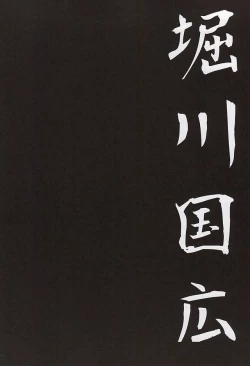 堀川国広